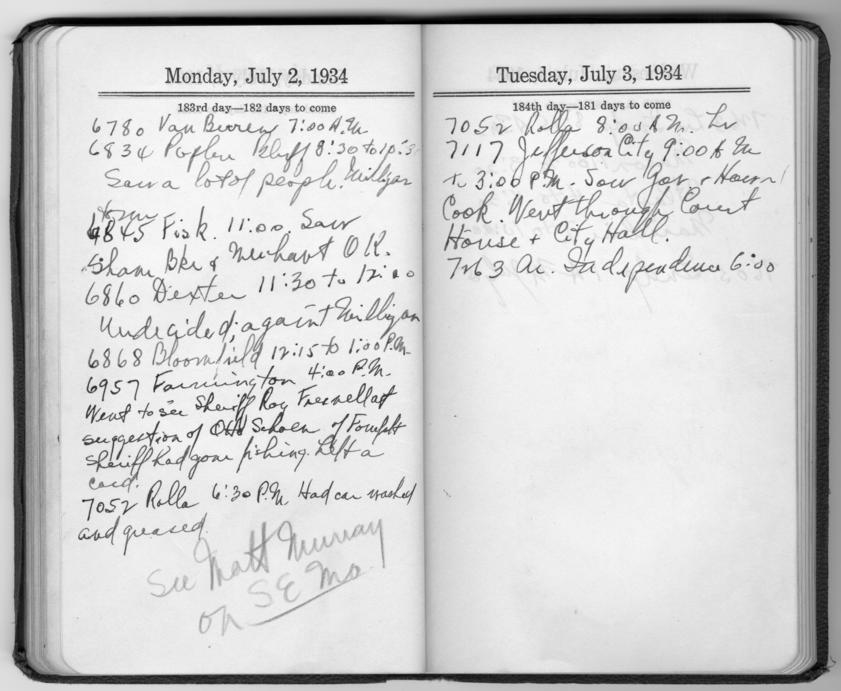 Monday, July 2, 1934
183rd day—182 days to come
6780 Van Buren 7:00 A.M
6834 Poplar Bluff 8:30 to 10:3
Saw a lot of people. Milligan
town
6845 Fisk. 11:00. Saw
Sham Bkr & Merchant O.K.
6860 Dexter 11:30 to 12:00
Undecided, against Milligan
6868 Bloomfield 12:15 to 1:00 P.M.
6957 Farmington 4:00 P.M.
Went to see Sheriff Roy Presnell at
suggestion of Otto Schoen of Forsyth
Sheriff had gone fishing. Left a
card.
7052 Rolla 6:30 P.M. Had car washed
and greased.
See Matt Murray
on S E Mo.
Tuesday, July 3, 1934
184th day—181 days to come
7052 Rolla 8:00 A.M. Lv
7117 Jefferson City 9:00 A M
to 3:00 P.M. Saw Gov &
Cook. Went through Court
House & City Hall.
Ar. Independence 6:00